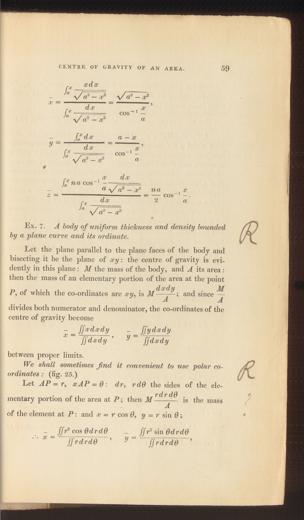 CENTRE OF GRAVITY OF AN AREA. 59
x̄ = ∫ₐˣ xdx/√(a² − x²) / ∫ₐˣ dx/√(a² − x²) = √(a² − x²) / cos⁻¹ x/a ,
ȳ = ∫ₐˣ dx / ∫ₐˣ dx/√(a² − x²) = a − x / cos⁻¹ x/a ,
z̄ = ∫ₐˣ na cos⁻¹ x/a dx/√(a² − x²) / ∫ₐˣ dx/√(a² − x²) = na/2 cos⁻¹ x/a .
Ex. 7. A body of uniform thickness and density bounded
by a plane curve and its ordinate.
R
Let the plane parallel to the plane faces of the body and
bisecting it be the plane of xy: the centre of gravity is evi-
dently in this plane: M the mass of the body, and A its area:
then the mass of an elementary portion of the area at the point
P, of which the co-ordinates are xy, is M dxdy/A ; and since M/A
divides both numerator and denominator, the co-ordinates of the
centre of gravity become
x̄ = ∬xdxdy / ∬dxdy , ȳ = ∬ydxdy / ∬dxdy
between proper limits.
We shall sometimes find it convenient to use polar co-
ordinates: (fig. 25.)
R
Let AP = r, xAP = θ: dr, rdθ the sides of the ele-
mentary portion of the area at P; then M rdrdθ/A is the mass
?
of the element at P: and x = r cos θ, y = r sin θ;
∴ x̄ = ∬r² cos θdrdθ / ∬rdrdθ , ȳ = ∬r² sin θdrdθ / ∬rdrdθ ,